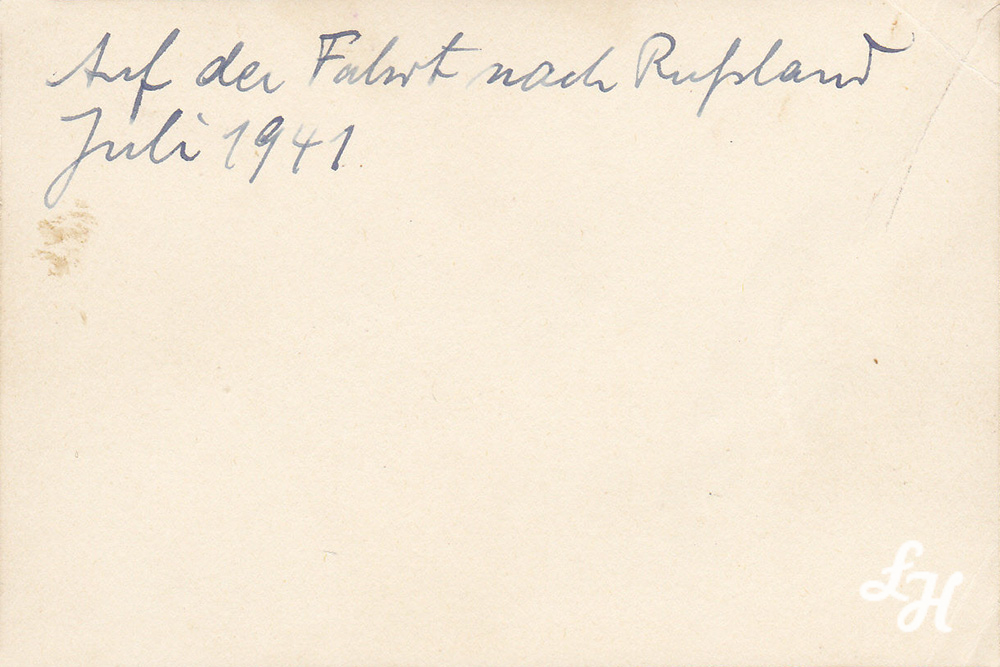 Auf der Fahrt nach Rußland
Juli 1941.
LH